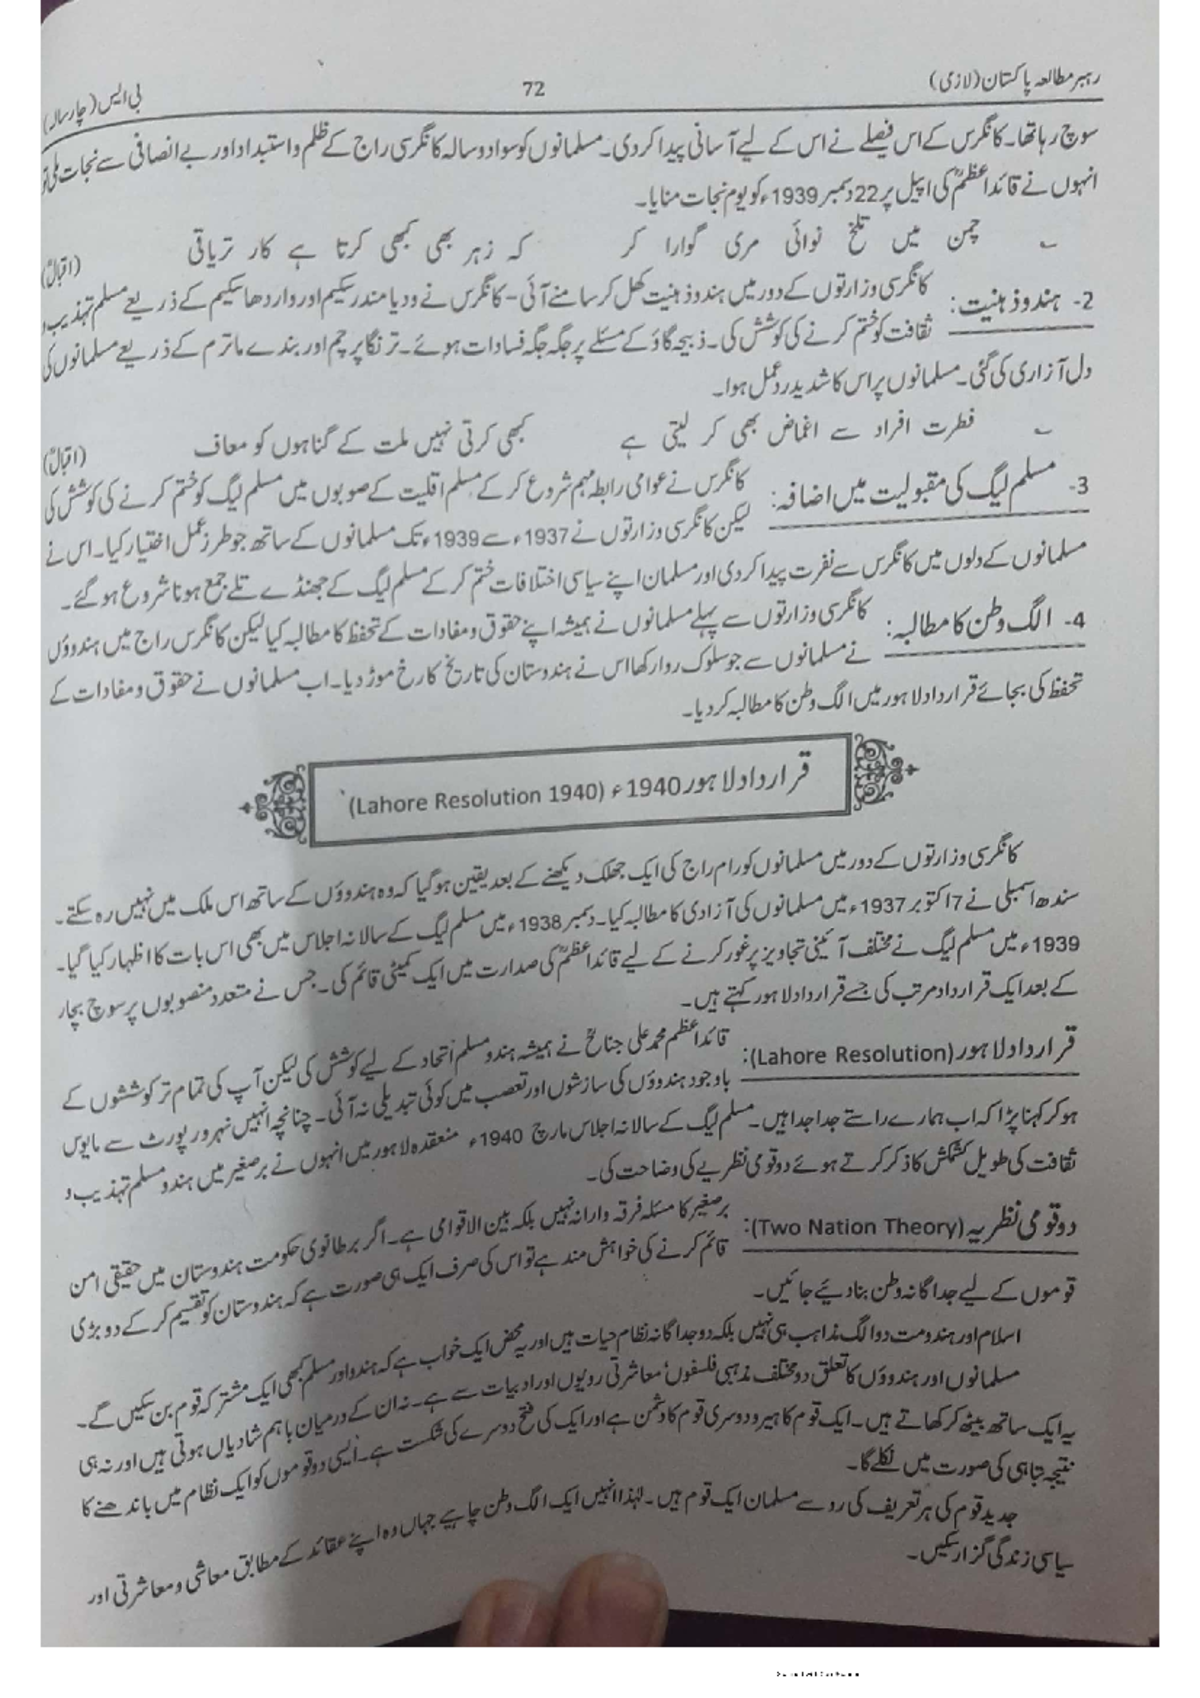 رہبر مطالعہ پاکستان (لازمی)
72
بی ایس (چار سالہ)
سوچ رہا تھا۔ کانگرس کے اس فیصلے نے اس کے لیے آسانی پیدا کر دی۔ مسلمانوں کو سوا دو سالہ کانگرسی راج کے ظلم و استبداد اور بے انصافی سے نجات ملی تو
انہوں نے قائداعظمؒ کی اپیل پر 22 دسمبر 1939ء کو یوم نجات منایا۔
؎ چمن میں تلخ نوائی مری گوارا کر کہ زہر بھی کبھی کرتا ہے کار تریاقی (اقبالؒ)
2- ہندو ذہنیت: کانگرسی وزارتوں کے دور میں ہندو ذہنیت کھل کر سامنے آئی - کانگرس نے ودیا مندر سکیم اور واردھا سکیم کے ذریعے مسلم تہذیب و
ثقافت کو ختم کرنے کی کوشش کی۔ ذبیحہ گاؤ کے مسئلے پر جگہ جگہ فسادات ہوئے۔ ترنگا پرچم اور بندے ماترم کے ذریعے مسلمانوں کی
دل آزاری کی گئی۔ مسلمانوں پر اس کا شدید ردعمل ہوا۔
؎ فطرت افراد سے اغماض بھی کر لیتی ہے کبھی کرتی نہیں ملت کے گناہوں کو معاف (اقبالؒ)
3- مسلم لیگ کی مقبولیت میں اضافہ: کانگرس نے عوامی رابطہ مہم شروع کر کے مسلم اقلیت کے صوبوں میں مسلم لیگ کو ختم کرنے کی کوشش کی
لیکن کانگرسی وزارتوں نے 1937ء سے 1939ء تک مسلمانوں کے ساتھ جو طرز عمل اختیار کیا۔ اس نے
مسلمانوں کے دلوں میں کانگرس سے نفرت پیدا کر دی اور مسلمان اپنے سیاسی اختلافات ختم کر کے مسلم لیگ کے جھنڈے تلے جمع ہونا شروع ہو گئے۔
4- الگ وطن کا مطالبہ: کانگرسی وزارتوں سے پہلے مسلمانوں نے ہمیشہ اپنے حقوق و مفادات کے تحفظ کا مطالبہ کیا لیکن کانگرس راج میں ہندوؤں
نے مسلمانوں سے جو سلوک روا رکھا اس نے ہندوستان کی تاریخ کا رخ موڑ دیا۔ اب مسلمانوں نے حقوق و مفادات کے
تحفظ کی بجائے قرارداد لاہور میں الگ وطن کا مطالبہ کر دیا۔
قرارداد لاہور 1940ء (Lahore Resolution 1940)
کانگرسی وزارتوں کے دور میں مسلمانوں کو رام راج کی ایک جھلک دیکھنے کے بعد یقین ہو گیا کہ وہ ہندوؤں کے ساتھ اس ملک میں نہیں رہ سکتے۔
سندھ اسمبلی نے 17 اکتوبر 1937ء میں مسلمانوں کی آزادی کا مطالبہ کیا۔ دسمبر 1938ء میں مسلم لیگ کے سالانہ اجلاس میں بھی اس بات کا اظہار کیا گیا۔
1939ء میں مسلم لیگ نے مختلف آئینی تجاویز پر غور کرنے کے لیے قائداعظمؒ کی صدارت میں ایک کمیٹی قائم کی۔ جس نے متعدد منصوبوں پر سوچ بچار
کے بعد ایک قرارداد مرتب کی جسے قرارداد لاہور کہتے ہیں۔
قرارداد لاہور (Lahore Resolution): قائداعظم محمد علی جناحؒ نے ہمیشہ ہندو مسلم اتحاد کے لیے کوشش کی لیکن آپ کی تمام تر کوششوں کے
باوجود ہندوؤں کی سازشوں اور تعصب میں کوئی تبدیلی نہ آئی۔ چنانچہ انہیں نہرو رپورٹ سے مایوس
ہو کر کہنا پڑا کہ اب ہمارے راستے جدا جدا ہیں۔ مسلم لیگ کے سالانہ اجلاس مارچ 1940ء منعقدہ لاہور میں انہوں نے برصغیر میں ہندو مسلم تہذیب و
ثقافت کی طویل کشمکش کا ذکر کرتے ہوئے دو قومی نظریے کی وضاحت کی۔
دو قومی نظریہ (Two Nation Theory): برصغیر کا مسئلہ فرقہ وارانہ نہیں بلکہ بین الاقوامی ہے۔ اگر برطانوی حکومت ہندوستان میں حقیقی امن
قائم کرنے کی خواہش مند ہے تو اس کی صرف ایک ہی صورت ہے کہ ہندوستان کو تقسیم کر کے دو بڑی
قوموں کے لیے جداگانہ وطن بنا دیئے جائیں۔
اسلام اور ہندومت دو الگ مذاہب ہی نہیں بلکہ دو جداگانہ نظام حیات ہیں اور یہ محض ایک خواب ہے کہ ہندو اور مسلم کبھی ایک مشترکہ قوم بن سکیں گے۔
مسلمانوں اور ہندوؤں کا تعلق دو مختلف مذہبی فلسفوں' معاشرتی رویوں اور ادبیات سے ہے۔ نہ ان کے درمیان باہم شادیاں ہوتی ہیں اور نہ ہی
یہ ایک ساتھ بیٹھ کر کھاتے ہیں۔ ایک قوم کا ہیرو دوسری قوم کا دشمن ہے اور ایک کی فتح دوسرے کی شکست ہے۔ ایسی دو قوموں کو ایک نظام میں باندھنے کا
نتیجہ تباہی کی صورت میں نکلے گا۔
جدید قوم کی ہر تعریف کی رو سے مسلمان ایک قوم ہیں۔ لہٰذا انہیں ایک الگ وطن چاہیے جہاں وہ اپنے عقائد کے مطابق معاشی و معاشرتی اور
سیاسی زندگی گزار سکیں۔